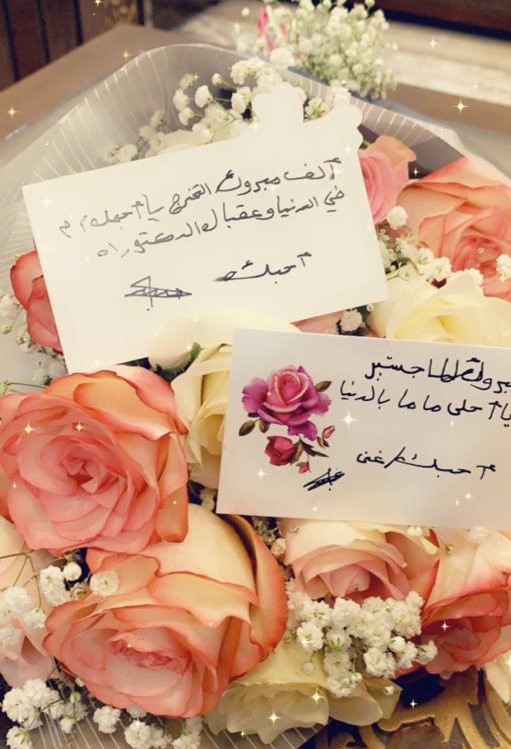 ألف مبروك التخرج يا أجمل أم
في الدنيا وعقبال الدكتوراه
أحبك
مبروك الماجستير
يا أحلى ماما بالدنيا
أحبك / غنى